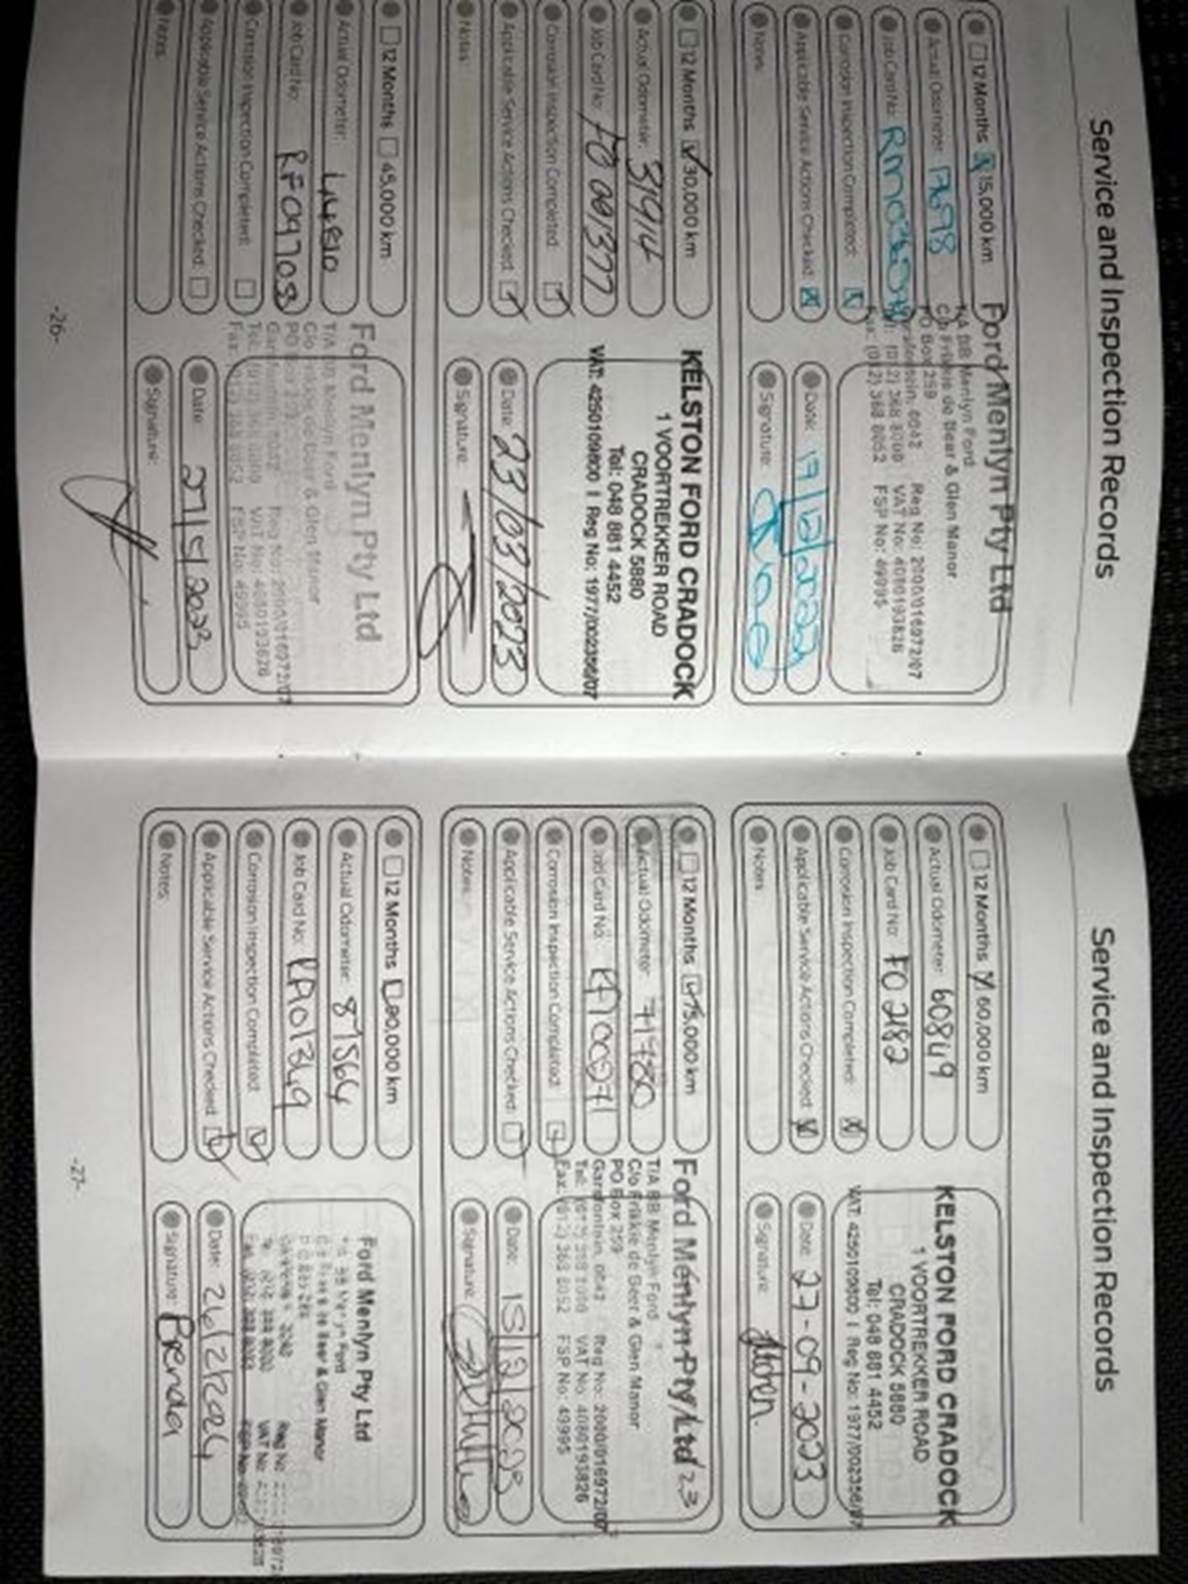 Service and Inspection Records
12 Months 15,000 km
Actual Odometer:
Job Card No:
Corrosion Inspection Completed:
Applicable Service Actions Checked:
Notes:
Ford Menlyn Pty Ltd
T/A BB Menlyn Ford
C/o Frikkie de Beer & Glen Manor
PO Box 259
Reg No: 2000/016972/07
VAT No: 4080193826
Fax: (012) 368 8052 FSP No: 49995
Date:
Signature:
12 Months 30,000 km
Actual Odometer: 31914
Job Card No:
Corrosion Inspection Completed:
Applicable Service Actions Checked:
Notes:
KELSTON FORD CRADOCK
1 VOORTREKKER ROAD
CRADOCK 5880
Tel: 048 881 4452
VAT: 4250109800 I Reg No: 1977/002356/07
Date: 23/03/2023
Signature:
12 Months 45,000 km
Actual Odometer:
Job Card No:
Corrosion Inspection Completed:
Applicable Service Actions Checked:
Notes:
Ford Menlyn Pty Ltd
T/A BB Menlyn Ford
C/o Frikkie de Beer & Glen Manor
PO Box 259
Reg No: 2000/016972/07
VAT No: 4080193826
FSP No: 49995
Date:
Signature:
-26-
Service and Inspection Records
12 Months 60,000 km
Actual Odometer: 60849
Job Card No: FO 2182
Corrosion Inspection Completed:
Applicable Service Actions Checked:
Notes:
KELSTON FORD CRADOCK
1 VOORTREKKER ROAD
CRADOCK 5880
Tel: 048 881 4452
VAT: 4250109800 I Reg No: 1977/002356/07
Date: 27-09-2023
Signature:
12 Months 75,000 km
Actual Odometer:
Job Card No:
Corrosion Inspection Completed:
Applicable Service Actions Checked:
Notes:
Ford Menlyn Pty Ltd
T/A BB Menlyn Ford
C/o Frikkie de Beer & Glen Manor
PO Box 259
Garsfontein, 0042 Reg No: 2000/016972/07
VAT No: 4080193826
Fax: (012) 368 8052 FSP No: 49995
Date: 15/12/2023
Signature:
12 Months 90,000 km
Actual Odometer: 87564
Job Card No:
Corrosion Inspection Completed:
Applicable Service Actions Checked:
Notes:
Ford Menlyn Pty Ltd
C/o Frikkie de Beer & Glen Manor
Date: 26/2/2024
Signature: Brenda
-27-